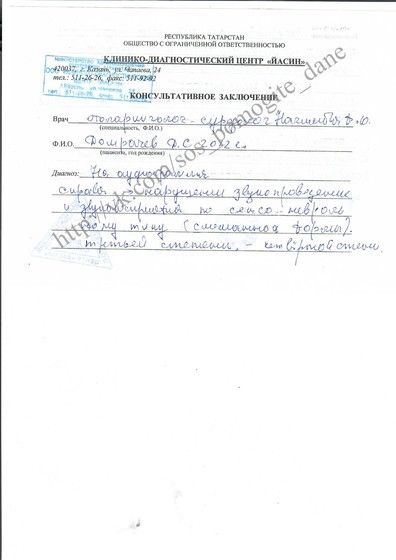 РЕСПУБЛИКА ТАТАРСТАН
ОБЩЕСТВО С ОГРАНИЧЕННОЙ ОТВЕТСТВЕННОСТЬЮ
КЛИНИКО-ДИАГНОСТИЧЕСКИЙ ЦЕНТР «ЙАСИН»
420037, г. Казань, ул. Чапаева, 24
тел.: 511-26-26, факс: 511-92-92
КОНСУЛЬТАТИВНОЕ ЗАКЛЮЧЕНИЕ
Врач отоларинголог - сурдолог
(специальность, Ф.И.О.)
Ф.И.О. Д.С. 2012 г.
(пациента, год рождения)
Диагноз: На
справа - нарушении звукопроведение
и звуковосприятия по сенсо-невраль
ному типу (смешанная форма)
третьей степени, - четвёртой степени.
http://vk.com/sos_pomogite_dane